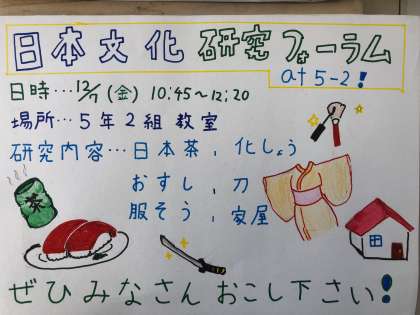 日本文化 研究フォーラム
at 5-2!
日時…12/7(金) 10:45~12:20
場所…5年2組 教室
研究内容…日本茶, 化しょう
おすし, 刀
服そう, 家屋
茶
ぜひみなさんおこし下さい!